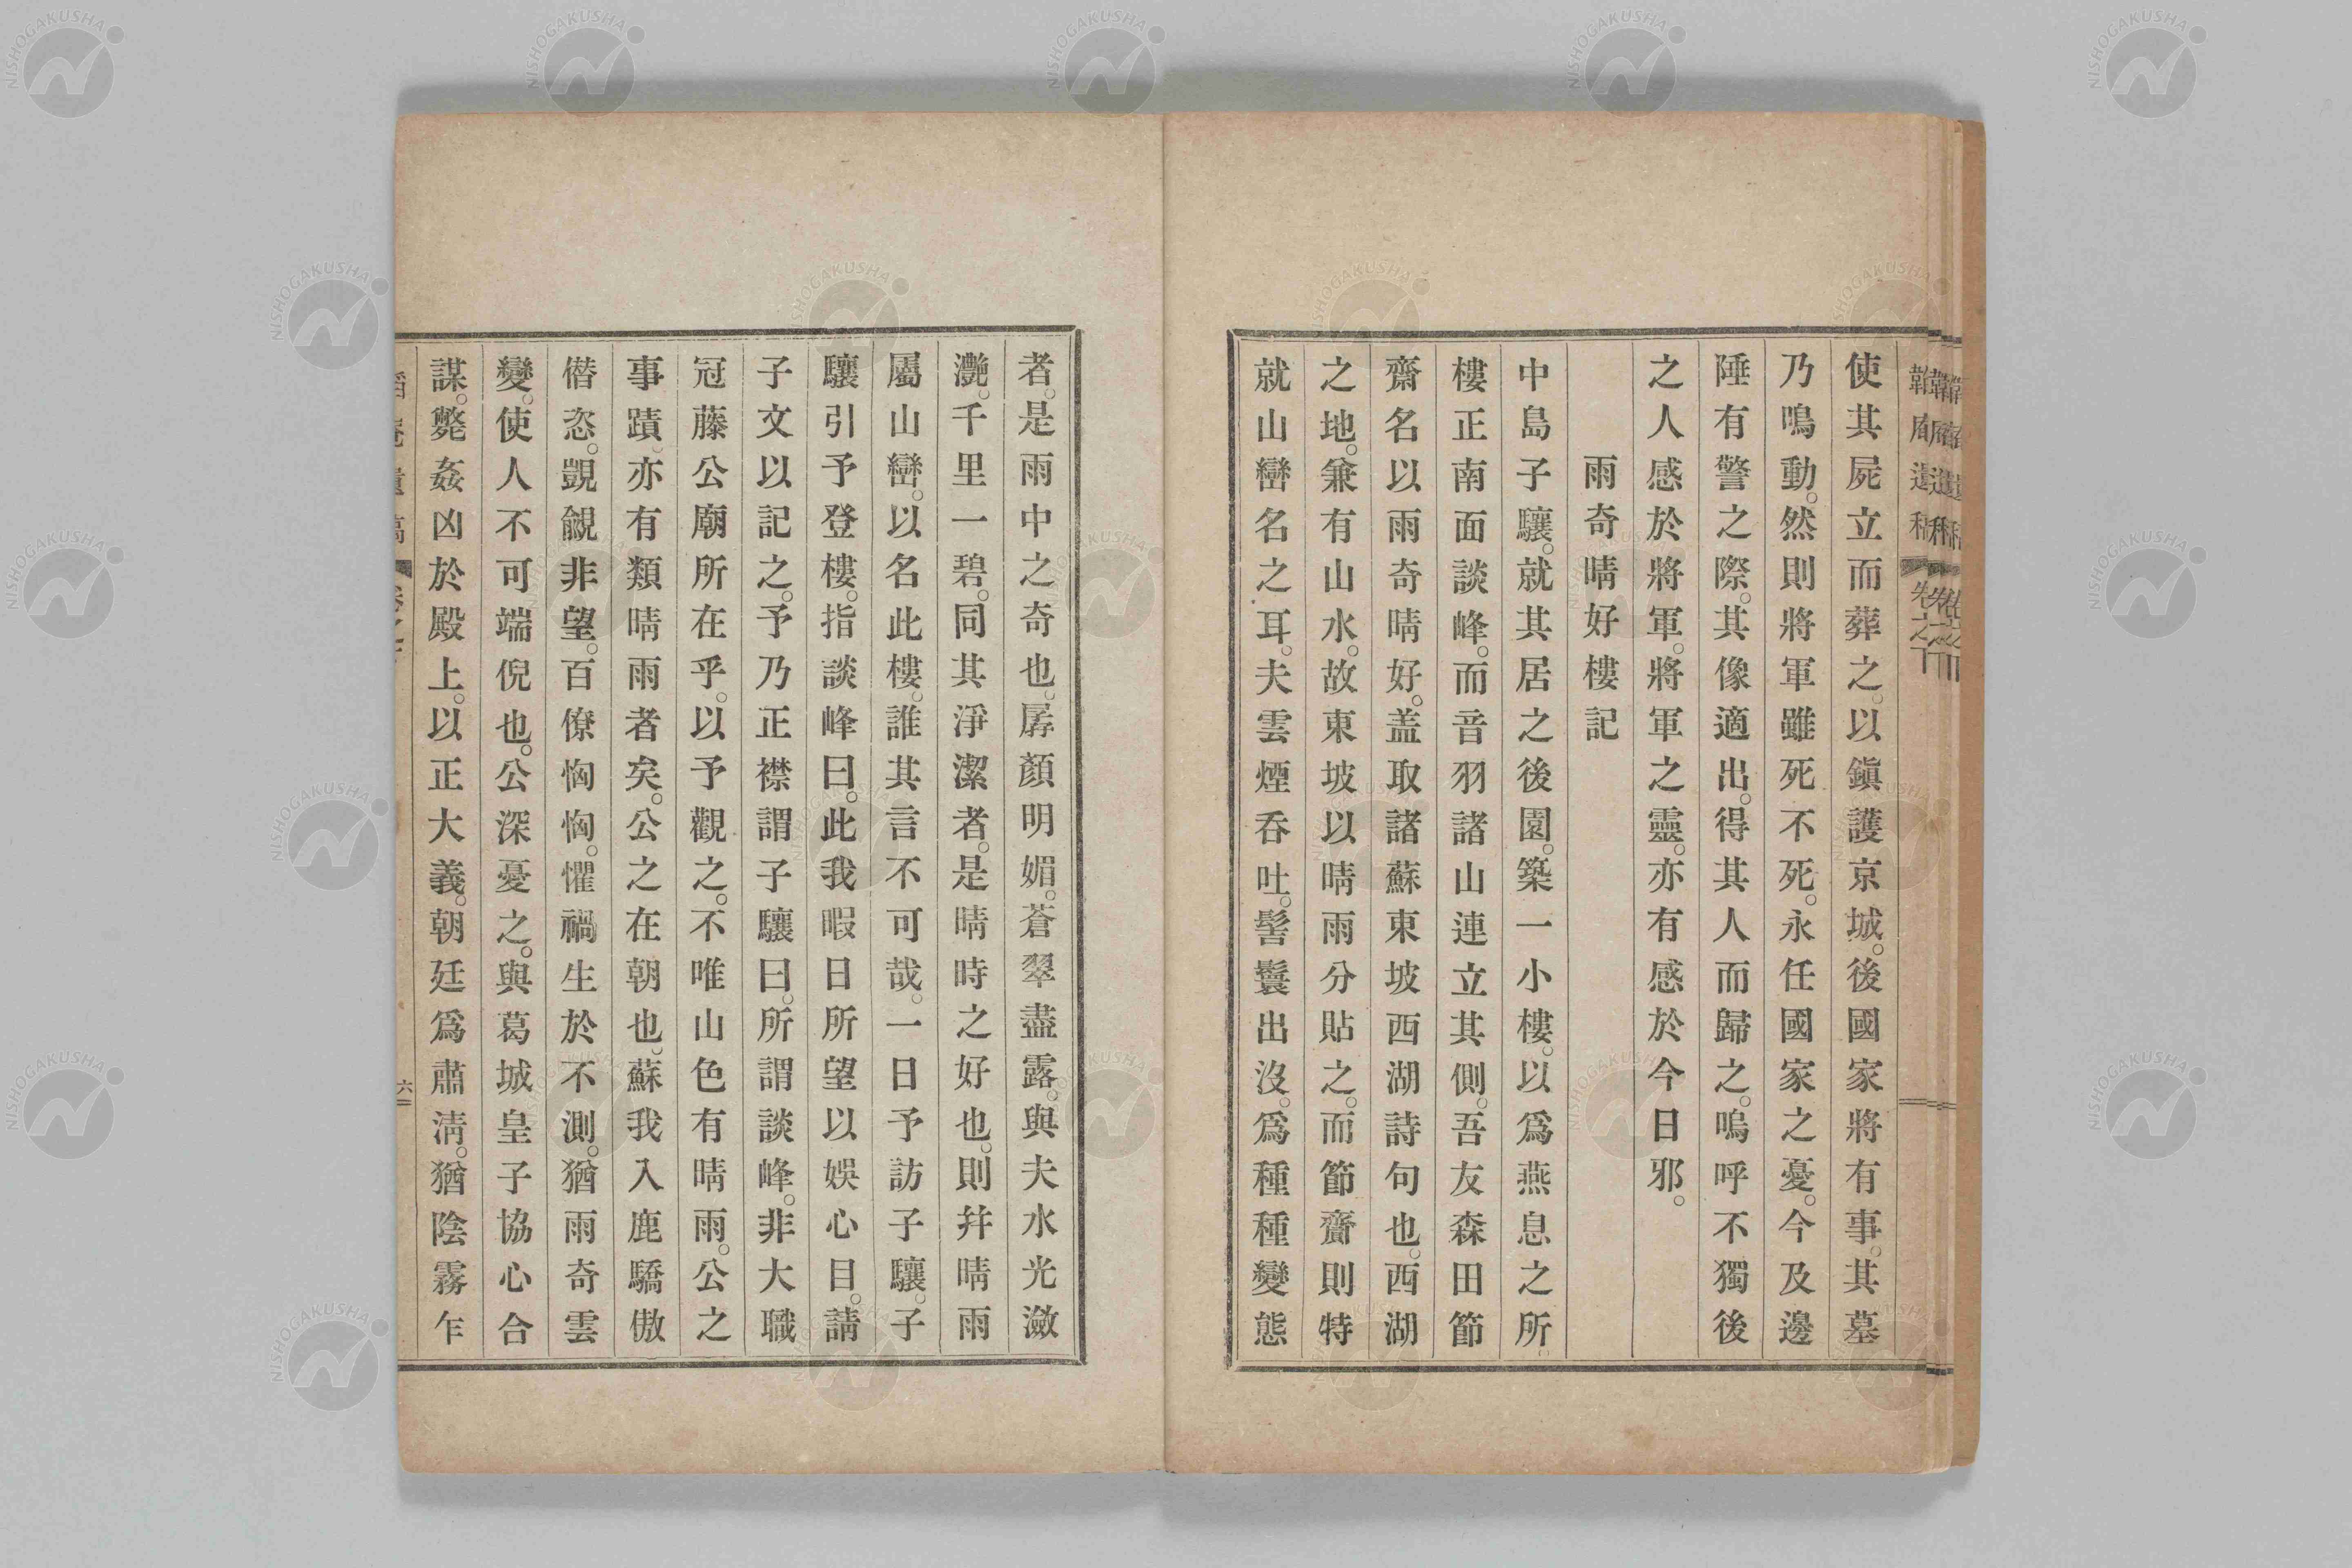 使其屍立而葬之。以鎭護京城。後國家將有事。其墓
乃鳴動。然則將軍雖死不死。永任國家之憂。今及邊
陲有警之際。其像適出。得其人而歸之。嗚呼不獨後
之人感於將軍。將軍之靈。亦有感於今日邪。
雨奇晴好樓記
中島子驤。就其居之後園。築一小樓。以爲燕息之所。
樓正南面談峰。而音羽諸山連立其側。吾友森田節
齋名以雨奇晴好。盖取諸蘇東坡西湖詩句也。西湖
之地。兼有山水。故東坡以晴雨分貼之。而節齋則特
就山巒名之耳。夫雲煙吞吐。髻鬟出沒。爲種種變態
者。是雨中之奇也。孱顏明媚。蒼翠盡露。與夫水光瀲
灔。千里一碧。同其淨潔者。是晴時之好也。則幷晴雨
屬山巒。以名此樓。誰其言不可哉。一日予訪子驤。子
驤引予登樓。指談峰曰。此我暇日所望以娛心目。請
子文以記之。予乃正襟謂子驤曰。所謂談峰。非大職
冠藤公廟所在乎。以予觀之。不唯山色有晴雨。公之
事蹟。亦有類晴雨者矣。公之在朝也。蘇我入鹿驕傲
僭恣。覬覦非望。百僚恟恟。懼禍生於不測。猶雨奇雲
變。使人不可端倪也。公深憂之。與葛城皇子協心合
謀。斃姦凶於殿上。以正大義。朝廷爲肅淸。猶陰霧乍
六